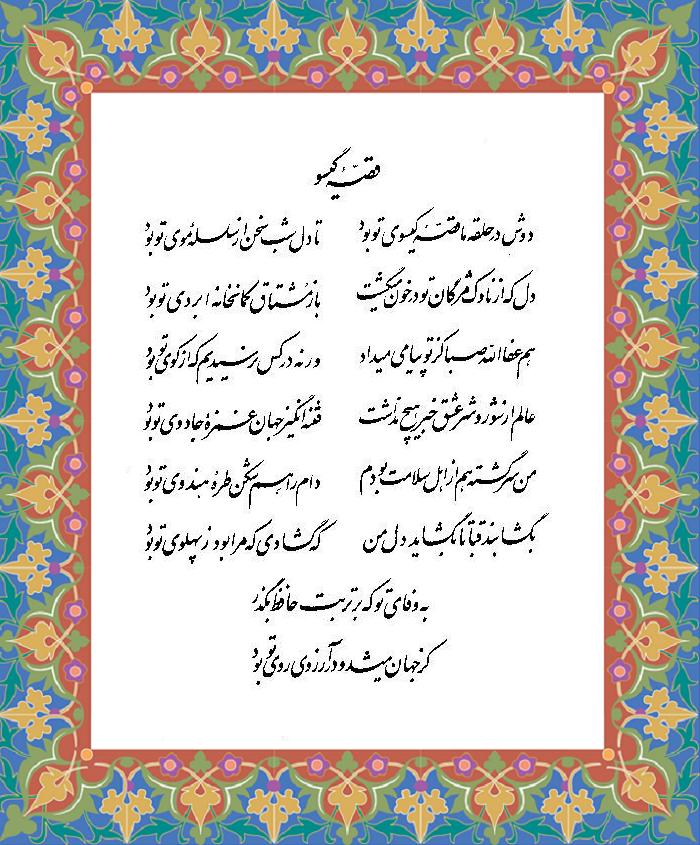 قصهٔ گیسو
دوش در حلقه ما قصهٔ گیسوی تو بود تا دل شب سخن از سلسلهٔ موی تو بود
دل که از ناوک مژگان تو در خون میگشت باز مشتاق کمانخانه ابروی تو بود
هم عفا الله صبا کز تو پیامی میداد ور نه در کس نرسیدیم که از کوی تو بود
عالم از شور و شر عشق خبر هیچ نداشت فتنه انگیز جهان غمزهٔ جادوی تو بود
من سرگشته هم از اهل سلامت بودم دام راهم شکن طرهٔ هندوی تو بود
بگشا بند قبا تا بگشاید دل من که گشادی که مرا بود ز پهلوی تو بود
به وفای تو که بر تربت حافظ بگذر
کز جهان میشد و در آرزوی روی تو بود